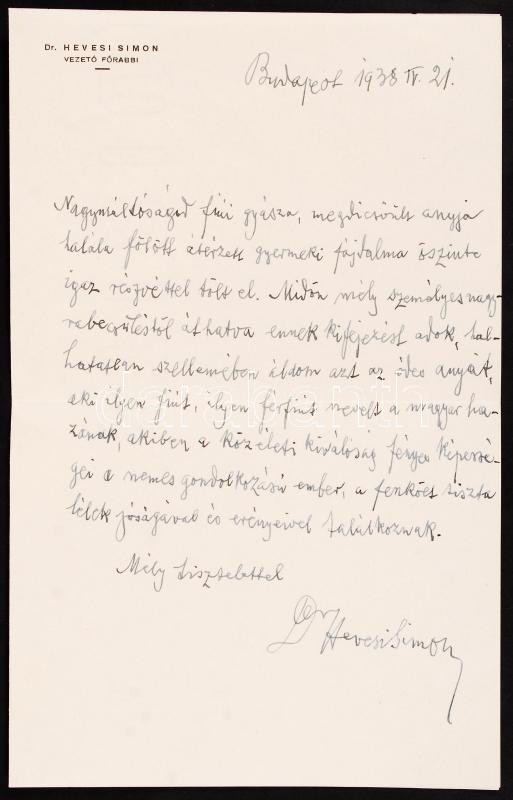 Dr. HEVESI SIMON
VEZETŐ FŐRABBI
Budapest 1938 IV. 21.
Nagyméltóságod fiúi gyásza, megdicsőült anyja
halála fölött átérzett gyermeki fájdalma őszinte
igaz részvéttel tölt el. Midőn mély személyes nagy-
rabecsüléstől áthatva ennek kifejezést adok, hal-
hatatlan szellemében áldom azt az édes anyát,
aki ilyen fiút, ilyen férfiút nevelt a magyar ha-
zának, akiben a közéleti kiválóság fényes képessé-
gei a nemes gondolkozású ember, a fenkölt tiszta
lélek jóságával és erényeivel találkoznak.
Mély tisztelettel
Dr Hevesi Simon
darabanth